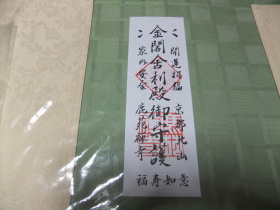 開運招福 如意
京都北山
金閣舎利殿御守護
家内安全 寿福
鹿苑禅寺